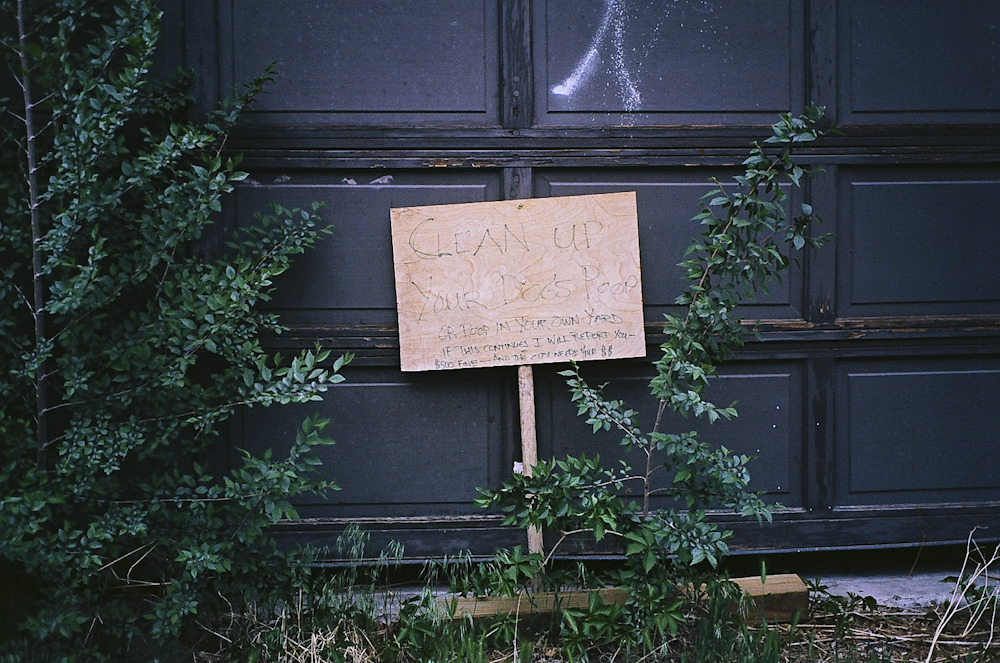 CLEAN UP
YOUR DOGS POOP
OR POOP IN YOUR OWN YARD
IF THIS CONTINUES I WILL REPORT YOU-
$500 FINE - AND THE CITY NEEDS YOUR $$